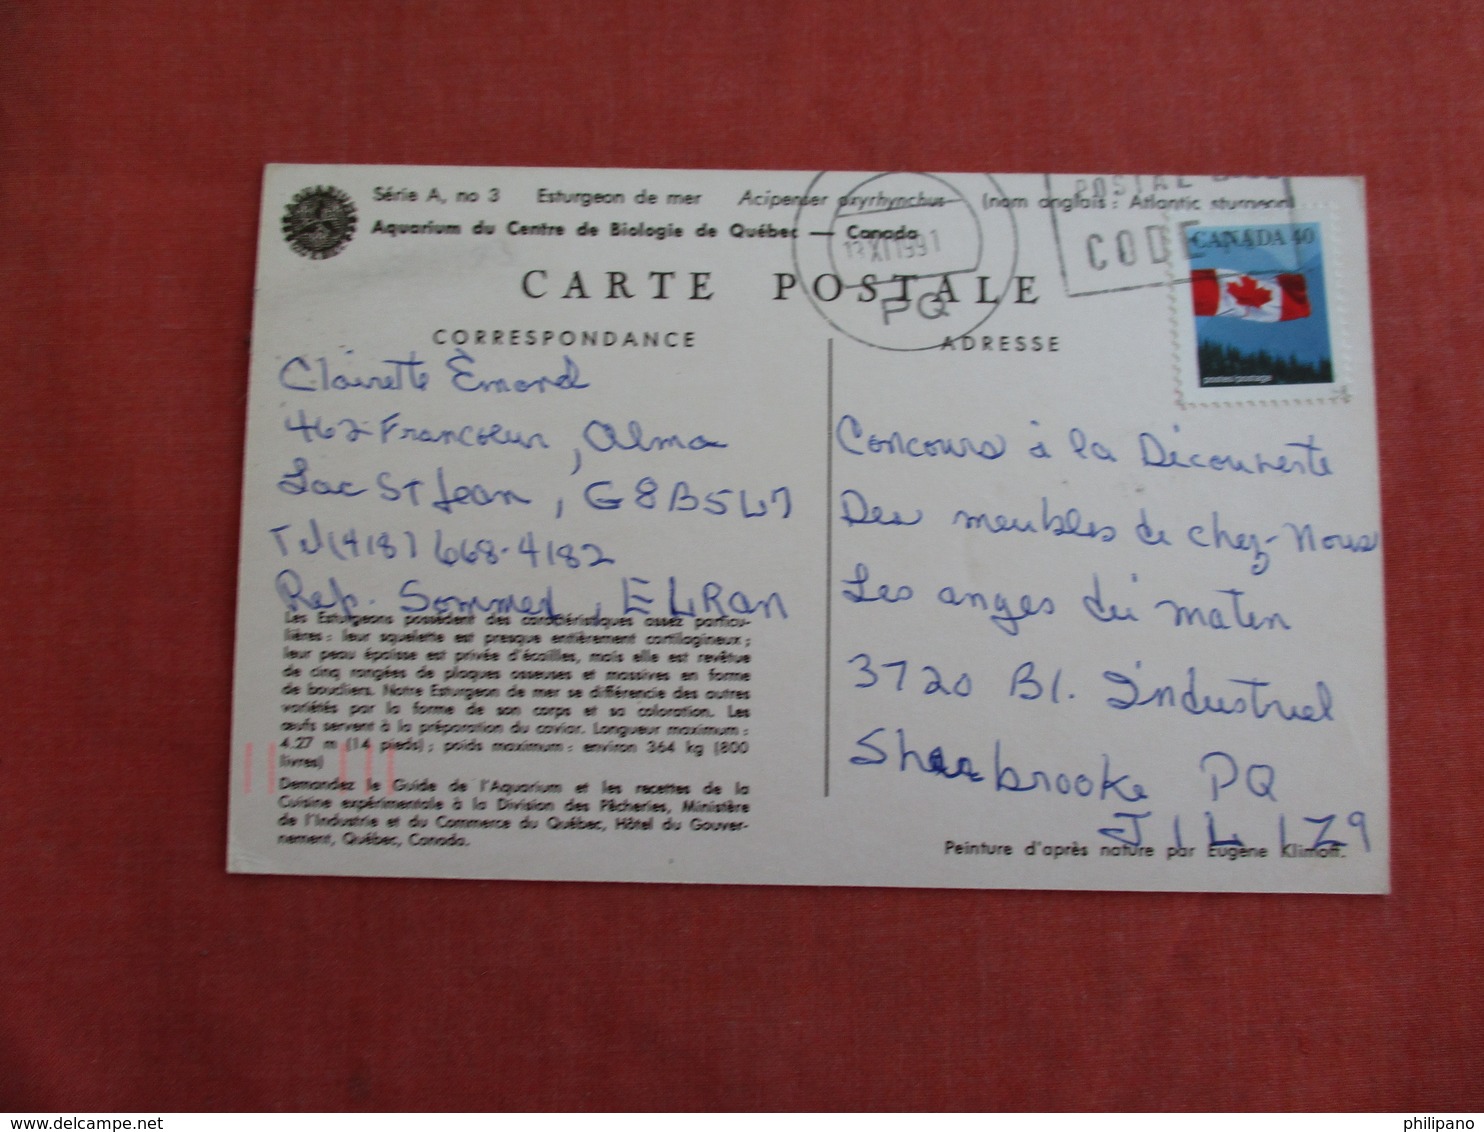 Série A, no 3 Esturgeon de mer Acipenser oxyrhynchus (nom anglais : Atlantic sturgeon)
Aquarium du Centre de Biologie de Québec — Canada
CARTE POSTALE
13 XI 1991
PQ
POSTAL
CODE
CANADA 40
postes/postage
CORRESPONDANCE
Clairette Émond
462 Francoeur, Alma
Lac St Jean, G8B5W7
Tel (418) 668-4182
Rep. Sommex, ELRan
Les Esturgeons possèdent des caractéristiques assez particu-
lières : leur squelette est presque entièrement cartilagineux ;
leur peau épaisse est privée d'écailles, mais elle est revêtue
de cinq rangées de plaques osseuses et massives en forme
de boucliers. Notre Esturgeon de mer se différencie des autres
variétés par la forme de son corps et sa coloration. Les
œufs servent à la préparation du caviar. Longueur maximum :
4.27 m (14 pieds) ; poids maximum : environ 364 kg (800
livres)
Demandez le Guide de l'Aquarium et les recettes de la
Cuisine expérimentale à la Division des Pêcheries, Ministère
de l'Industrie et du Commerce du Québec, Hôtel du Gouver-
nement, Québec, Canada.
ADRESSE
Concours à la Découverte
Des meubles de chez-Nous
Les anges du matin
3720 Bl. Industriel
Sherbrooke PQ
J1L 1Z9
Peinture d'après nature par Eugène Klimoff.
philipano